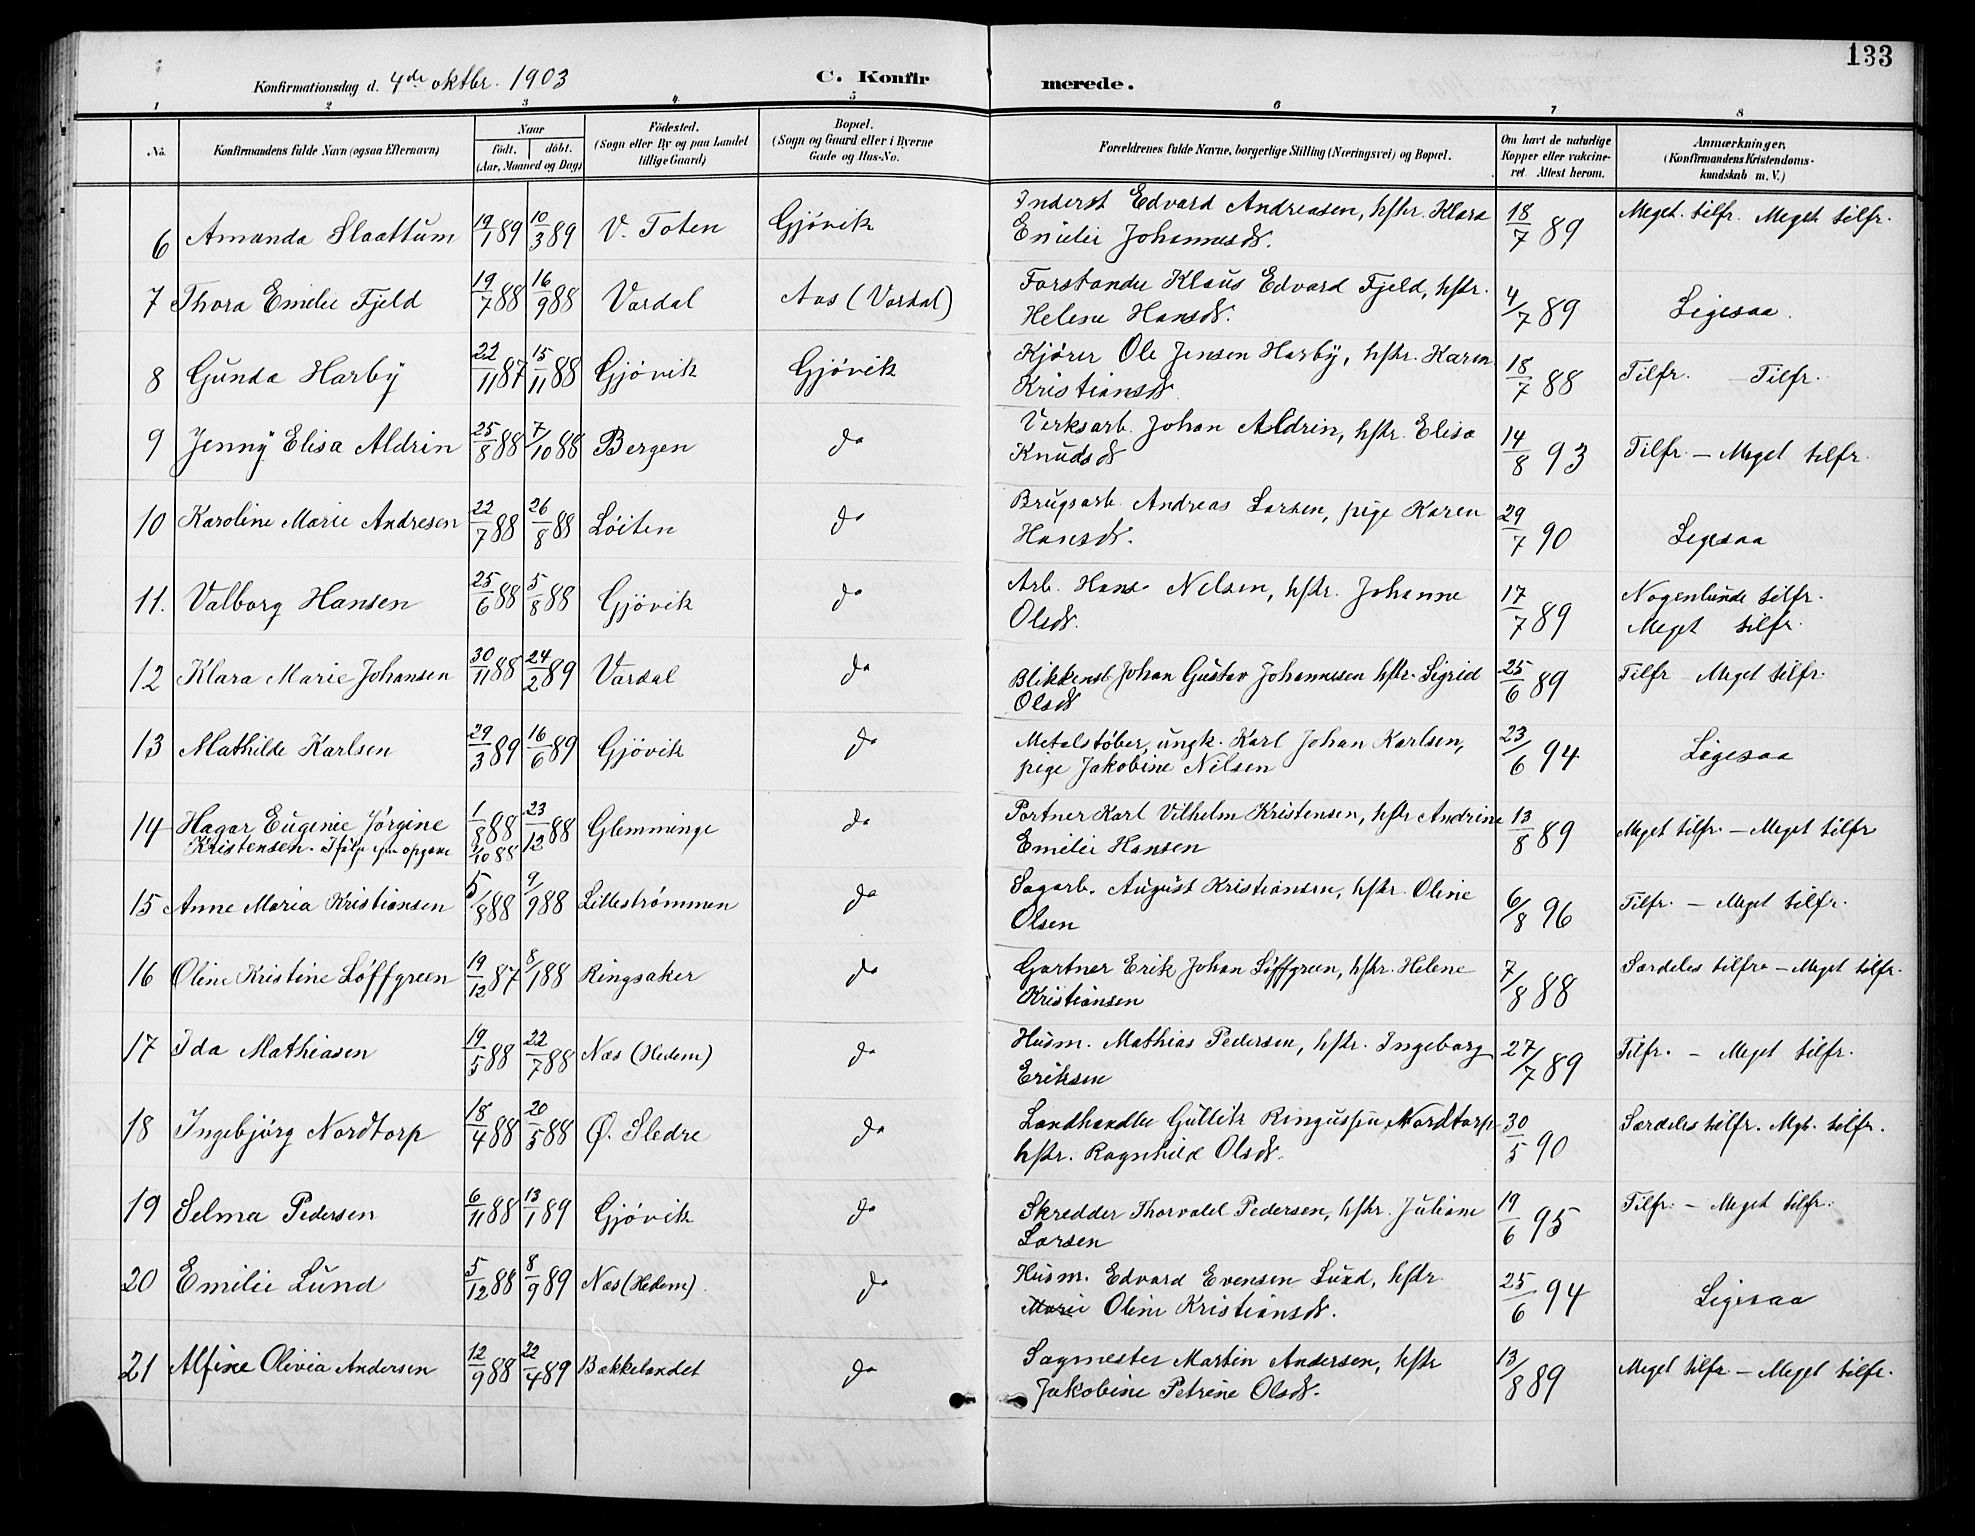 133
Konfirmationsdag d. 4de oktbr. 1903 C. Konfir merede.
1 2 3 4 5 6 7 8
No. Konfirmandens fulde Navn (ogsaa Efternavn) Naar født. døbt. (Aar, Maaned og Dag) Fødested. (Sogn eller By og paa Landet tillige Gaard) Bopæl. (Sogn og Gaard eller i Byerne Gade og Hus-No. Forældrenes fulde Navne, borgerlige Stilling (Næringsvei) og Bopæl. Om havt de naturlige Kopper eller vakcineret. Attest herom. Anmærkninger. (Konfirmandens Kristendomskundskab m. V.)
6 Amanda Slaattum 19/1 89 10/3 89 V. Toten Gjøvik Inderst Edvard Andreasen, hstr. Klara
Emilie Johannesdr. 18/7 89 Meget tilfr. Meget tilfr.
7 Thora Emilie Fjeld 19/7 88 16/9 88 Vardal Aas (Vardal) Forstander Klaus Edvard Fjeld, hstr.
Helene Hansdr. 4/7 89 Ligesaa.
8 Gunda Harby 22/11 87 15/11 88 Gjøvik Gjøvik Kjører Ole Jensen Harby, hstr. Karen
Kristiansdr. 18/7 88 Tilfr. – Tilfr.
9 Jenny Elisa Aldrin 25/8 88 7/10 88 Bergen do Verksarb. Johan Aldrin, hstr. Elisa
Knudsdr 14/8 93 Tilfr. – Meget tilfr.
10 Karoline Marie Andresen 22/7 88 26/8 88 Løiten do Brugsarb. Andreas Larsen, pige Karen
Hansdr. 29/7 90 Ligesaa
11. Valborg Hansen 25/6 88 5/8 88 Gjøvik do Arb. Hans Nilsen, hstr. Johanne
Olsdr. 17/7 89 Nogenlunde tilfr.
Meget tilfr.
12 Klara Marie Johansen 30/11 88 24/2 89 Vardal do Blikkensl. Johan Gustav Johannesen hstr. Sigrid
Olsdr 25/6 89 Tilfr – Meget tilfr.
13 Mathilde Karlsen 29/3 89 16/6 89 Gjøvik do Metalstøber, ungk. Karl Johan Karlsen,
pige Jakobine Nilsen 23/6 94 Ligesaa
14 Hagar Eugenie Jørgine
Kristensen. Ifølge egen opgave 1/8 88 9/10 88 23/12 88 Glemminge do Portner Karl Vilhelm Kristensen, hstr Andrine
Emilie Hansen 13/8 89 Meget tilfr. – Meget tilfr
15 Anne Maria Kristiansen 5/8 88 9/9 88 Lillestrømmen do Sagarb. August Kristiansen, hstr. Oline
Olsen 6/8 96 Tilfr. – Meget tilfr.
16 Oline Kristine Løffgreen 19/12 87 8/1 88 Ringsaker do Gartner Erik Johan Løffgreen, hstr. Helene
Kristiansen 7/8 88 Særdeles tilfr. – Meget tilfr.
17 Ida Mathiasen 19/5 88 22/7 88 Næs (Hedem) do Husm. Mathias Pedersen, hstr. Ingeborg
Eriksen 27/7 89 Tilfr. – Meget tilfr.
18 Ingebjørg Nordtorp 18/4 88 20/5 88 Ø. Sledre do Landhandler Gullik Nordtorp
hstr. Ragnhild Olsdr. 30/5 90 Særdeles tilfr. Mgt. tilfr.
19 Selma Pedersen 6/11 88 13/1 89 Gjøvik do Skrædder Thorvald Pedersen, hstr. Juliane
Larsen 19/6 95 Tilfr. – Meget tilfr.
20 Emilie Lund 5/12 88 8/9 89 Næs (Hedem). do Husm. Edvard Evensen Lund, hstr
Marie Oline Kristiansdr. 25/6 94 Ligesaa
21 Alfine Olivia Andersen 12/9 88 22/4 89 Bakkelandet do Sagmester Martin Andersen, hstr
Jakobine Petrine Olsdr. 13/8 89 Meget tilfr – Meget tilfr.